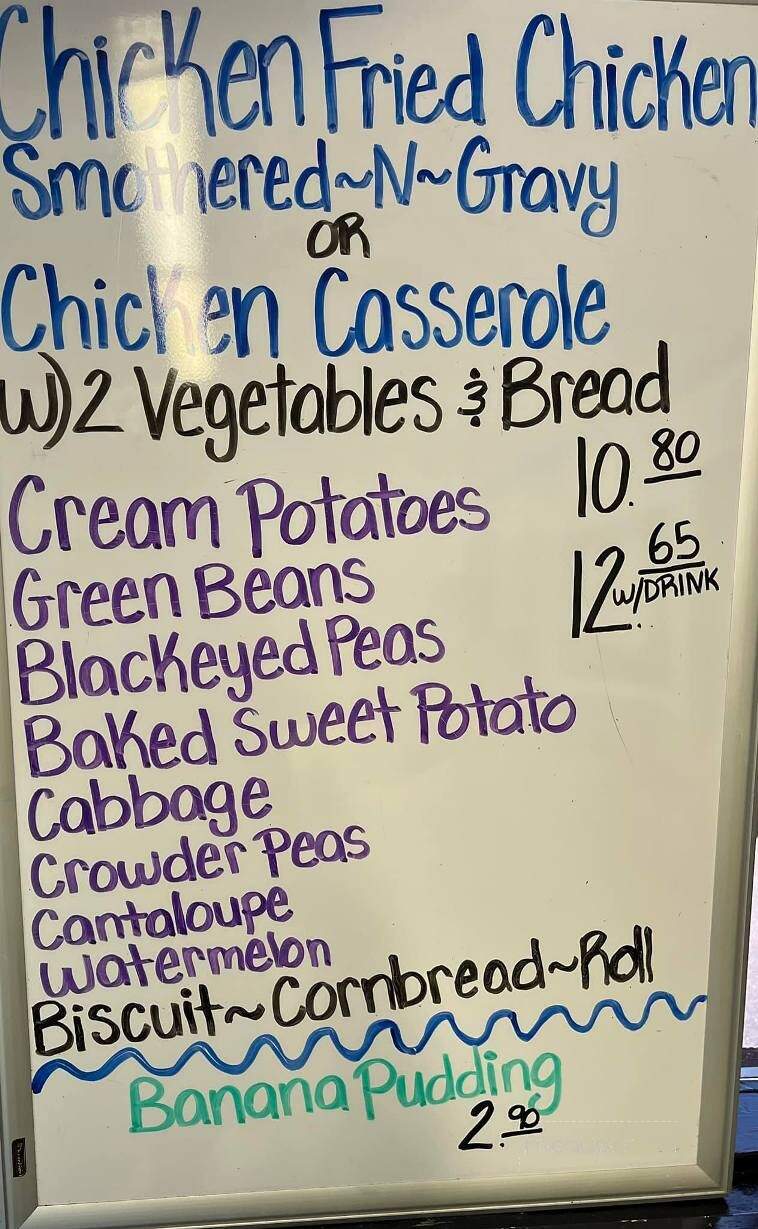 Chicken Fried Chicken
Smothered~N~Gravy
OR
Chicken Casserole
W) 2 Vegetables & Bread
10.80
Cream Potatoes
12.65
W/DRINK
Green Beans
Blackeyed Peas
Baked Sweet Potato
Cabbage
Crowder Peas
Cantaloupe
Watermelon
Biscuit~Cornbread~Roll
Banana Pudding
2.90